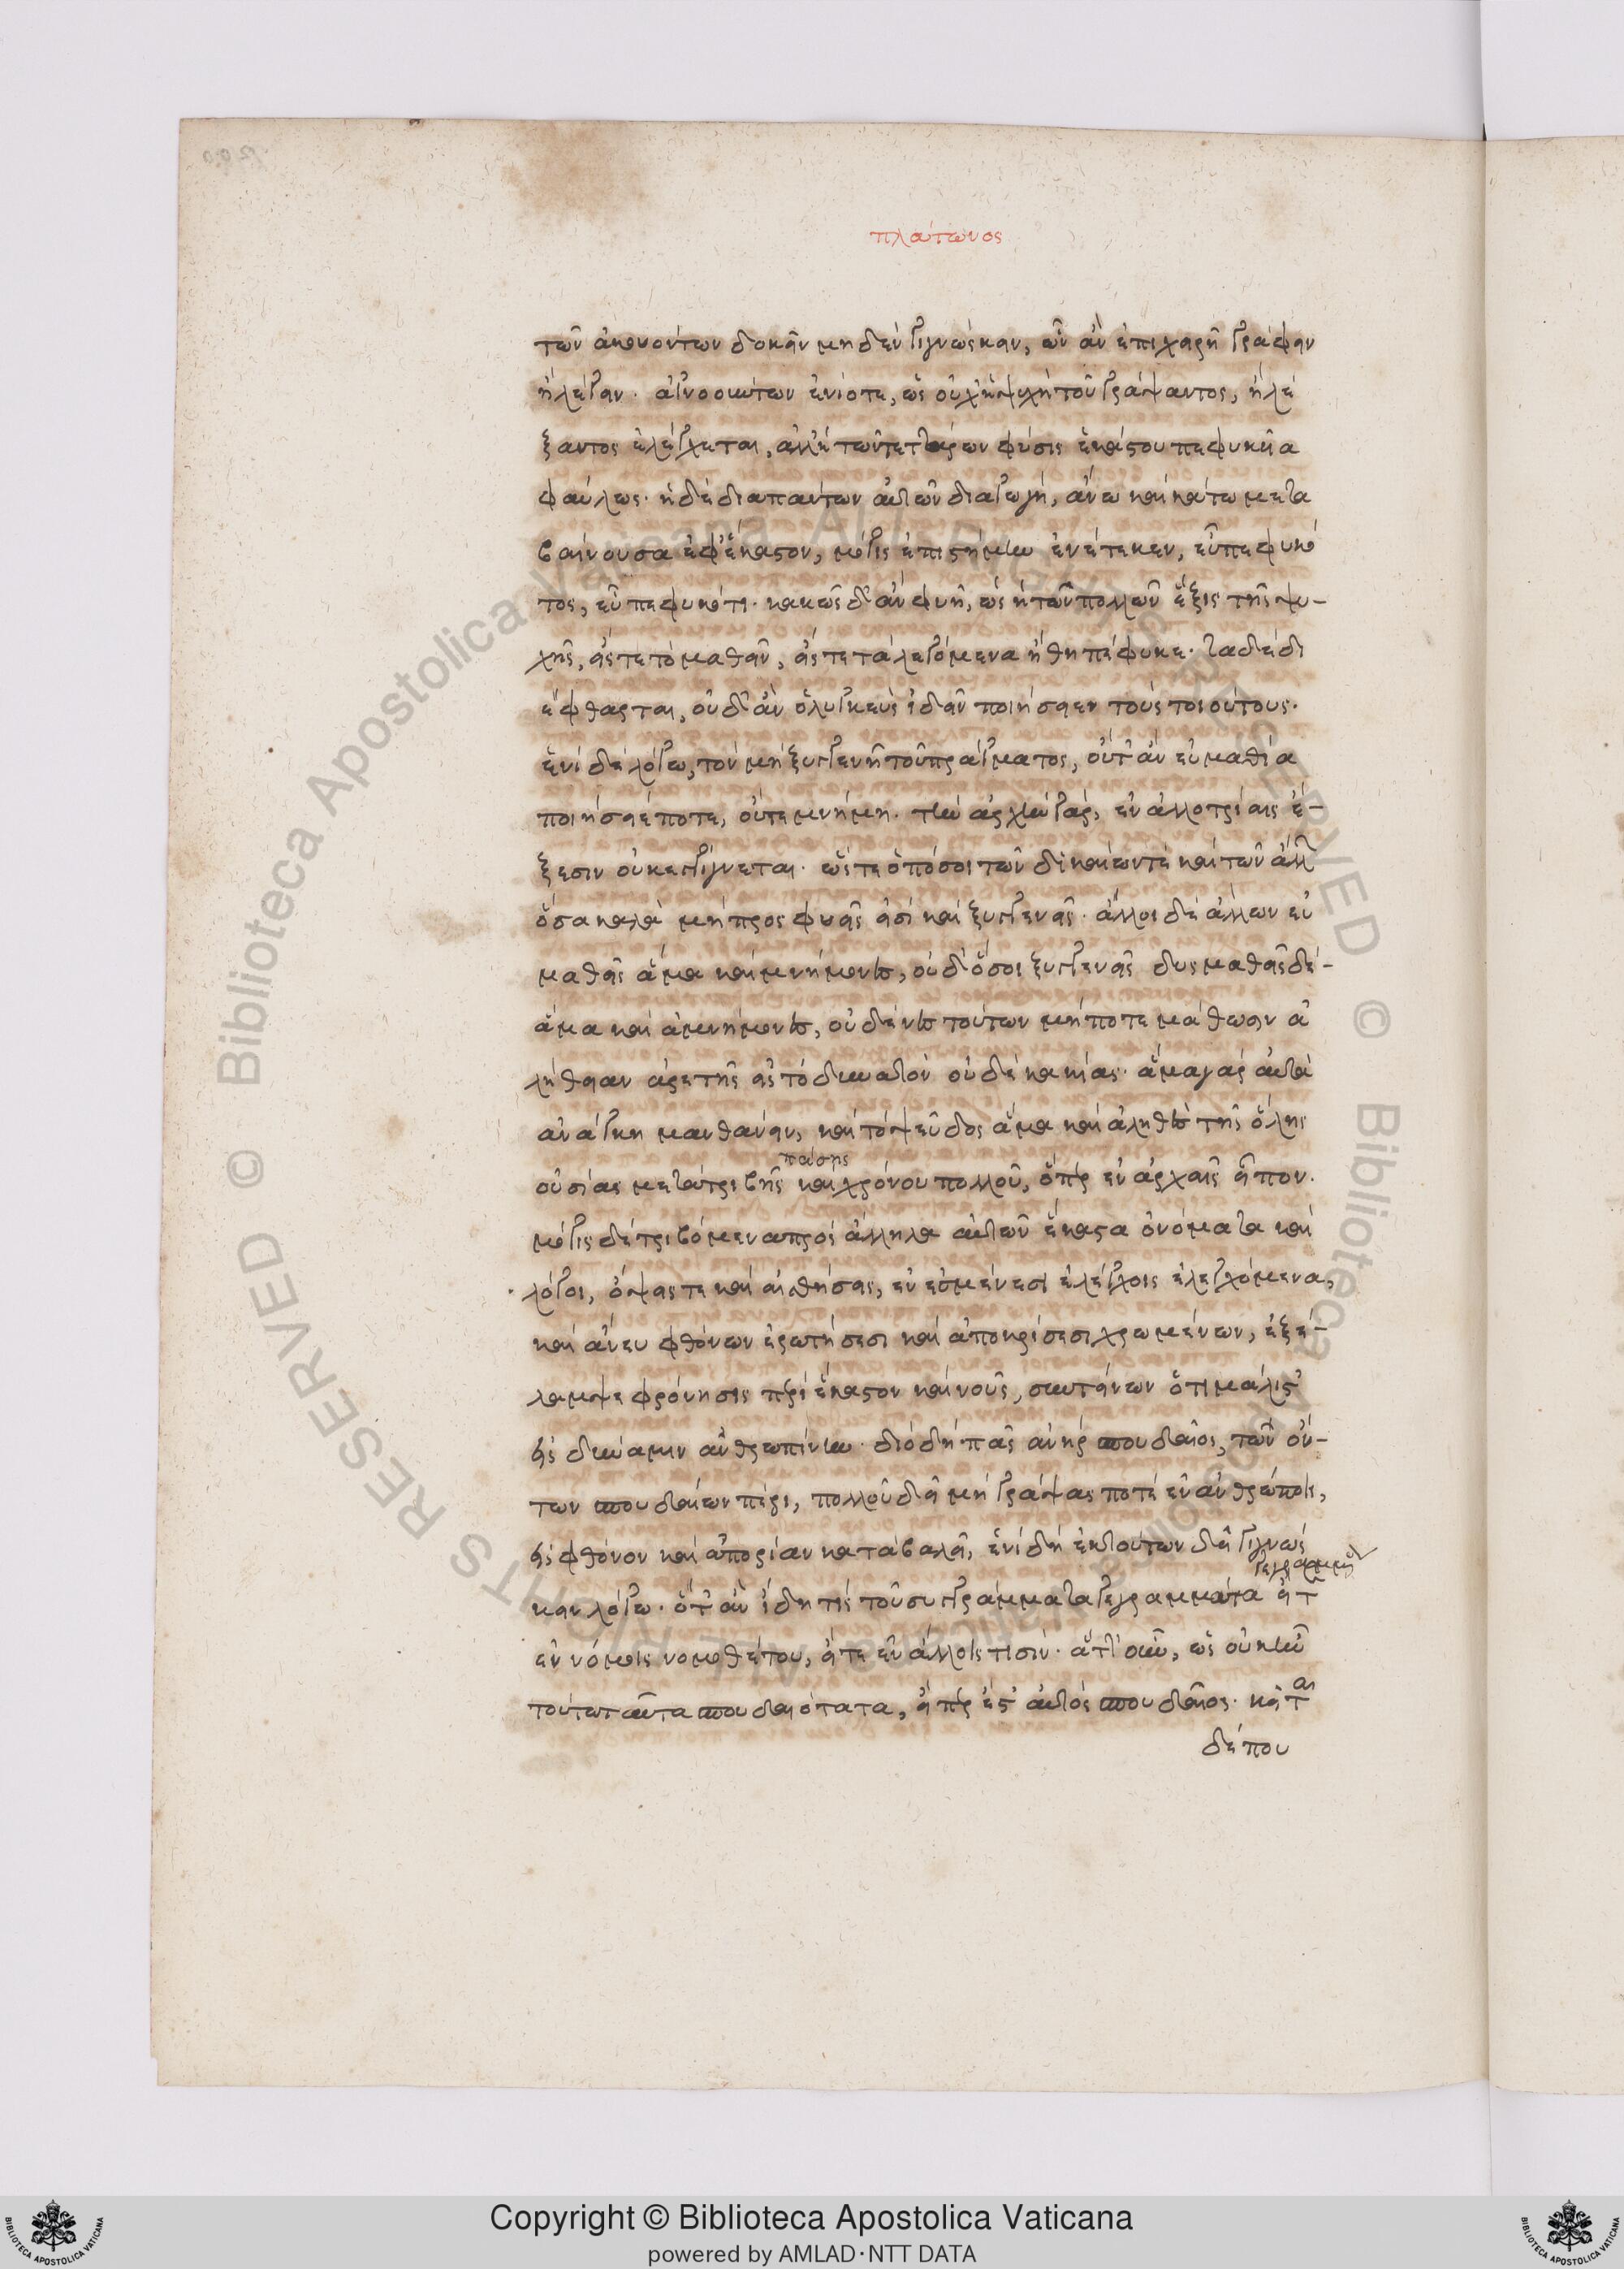 πλάτωνος
τῶν ἀκουόντων δοκεῖν μηδὲν γιγνώσκειν, ὧν ἂν ἐπιχειρῇ γράφειν
ἢ λέγειν. ἀγνοούντων ἐνίοτε, ὡς οὐχ ἡ ψυχὴ τοῦ γράψαντος, ἢ λέ
ξαντος ἐλέγχεται, ἀλλ' ἡ τῶν τετάρων φύσις ἑκάστου πεφυκῦια
φαύλως. ἡ δὲ διαπάντων αὐτῶν διαγωγὴ, ἄνω καὶ κάτω μετα
βαίνουσα ἐφ' ἕκαστον, μόγις ἐπιστήμην ἐνέτεκεν, εὖ πεφυκό
τος, εὖ πεφυκότι. κακῶς δ' ἂν φυῇ, ὡς ἡ τῶν πολλῶν ἕξις τῆς ψυ-
χῆς, εἴς τε τὸ μαθεῖν, εἴς τε τὰ λεγόμενα ἤθη πέφυκε. τὰ δὲ δι
έφθαρται, οὐδ' ἂν ὁ λυγκεὺς ἰδεῖν ποιήσειεν τοὺς τοιούτους.
ἑνὶ δὲ λόγω, τὸν μὴ ξυγγενῆ τοῦ πράγματος, οὔτ' ἂν εὐμαθία
ποιήσειέ ποτε, οὔτε μνήμη. τὴν ἀρχὴν γὰρ, ἐν ἀλλοτρίαις ἕ-
ξεσιν οὐκ ἐγγίγνεται. ὥστε ὁπόσοι τῶν δικαίων τὲ καὶ τῶν ἄλλ
ὅσα καλὰ μὴ προσφυεῖς εἰσὶ καὶ ξυγγενεῖς. ἄλλοι δὲ ἄλλων εὐ
μαθεῖς ἅμα καὶ μνήμονες, οὐδ' ὅσοι ξυγγενεῖς δυσμαθεῖς δὲ-
ἅμα καὶ ἀμνήμονες, οὐδένες τούτων μήποτε μάθωσιν ἀ
λήθειαν ἀρετῆς εἰς τὸ δυνατὸν οὐδὲ κακίας. ἅμα γὰρ αὐτὰ
ἀνάγκη μανθάνειν, καὶ τὸ ψεῦδος ἅμα καὶ ἀληθὲς τῆς ὅλης
πάσης
οὐσίας μετὰ τριβῆς καὶ χρόνου πολλοῦ, ὅπερ ἐν ἀρχαῖς εἶπον.
μόγις δὲ τριβόμενα πρὸς ἄλληλα αὐτῶν ἕκαστα ὀνόματα καὶ
λόγοι, ὄψεις τε καὶ αἰσθήσεις, ἐν εὐμενέσι ἐλέγχοις ἐλεγχόμενα,
καὶ ἄνευ φθόνων ἐρωτήσεσι καὶ ἀποκρίσεσι χρωμένων, ἐξέ-
λαμψε φρόνησις περὶ ἕκαστον καὶ νοῦς, συντείνων ὅτι μάλιστ'
εἰς δύναμιν ἀνθρωπίνην. διὸ δὴ πᾶς ἀνὴρ σπουδαῖος, τῶν ὄν-
των σπουδαίων πέρι, πολλοῦ δεῖ μὴ γράψας ποτὲ ἐν ἀνθρώποις,
εἰς φθόνον καὶ ἀπορίαν καταβαλεῖ, ἑνὶ δὴ ἐκ τούτων δεῖ γιγνώς
γεγραμμέν
κειν λόγω. ὅτ' ἂν ἴδη τίς του συγγράμματα γεγραμματα εἴτ
ἐν νόμοις νομοθέτου, εἴτε ἐν ἄλλοις τισὶν. ἄττ' οὖν, ὡς οὐκ ἦν
τούτω ταῦτα σπουδαιότατα, εἴπερ ἔστ' αὐτὸς σπουδαῖος. κεῖται
δέ που